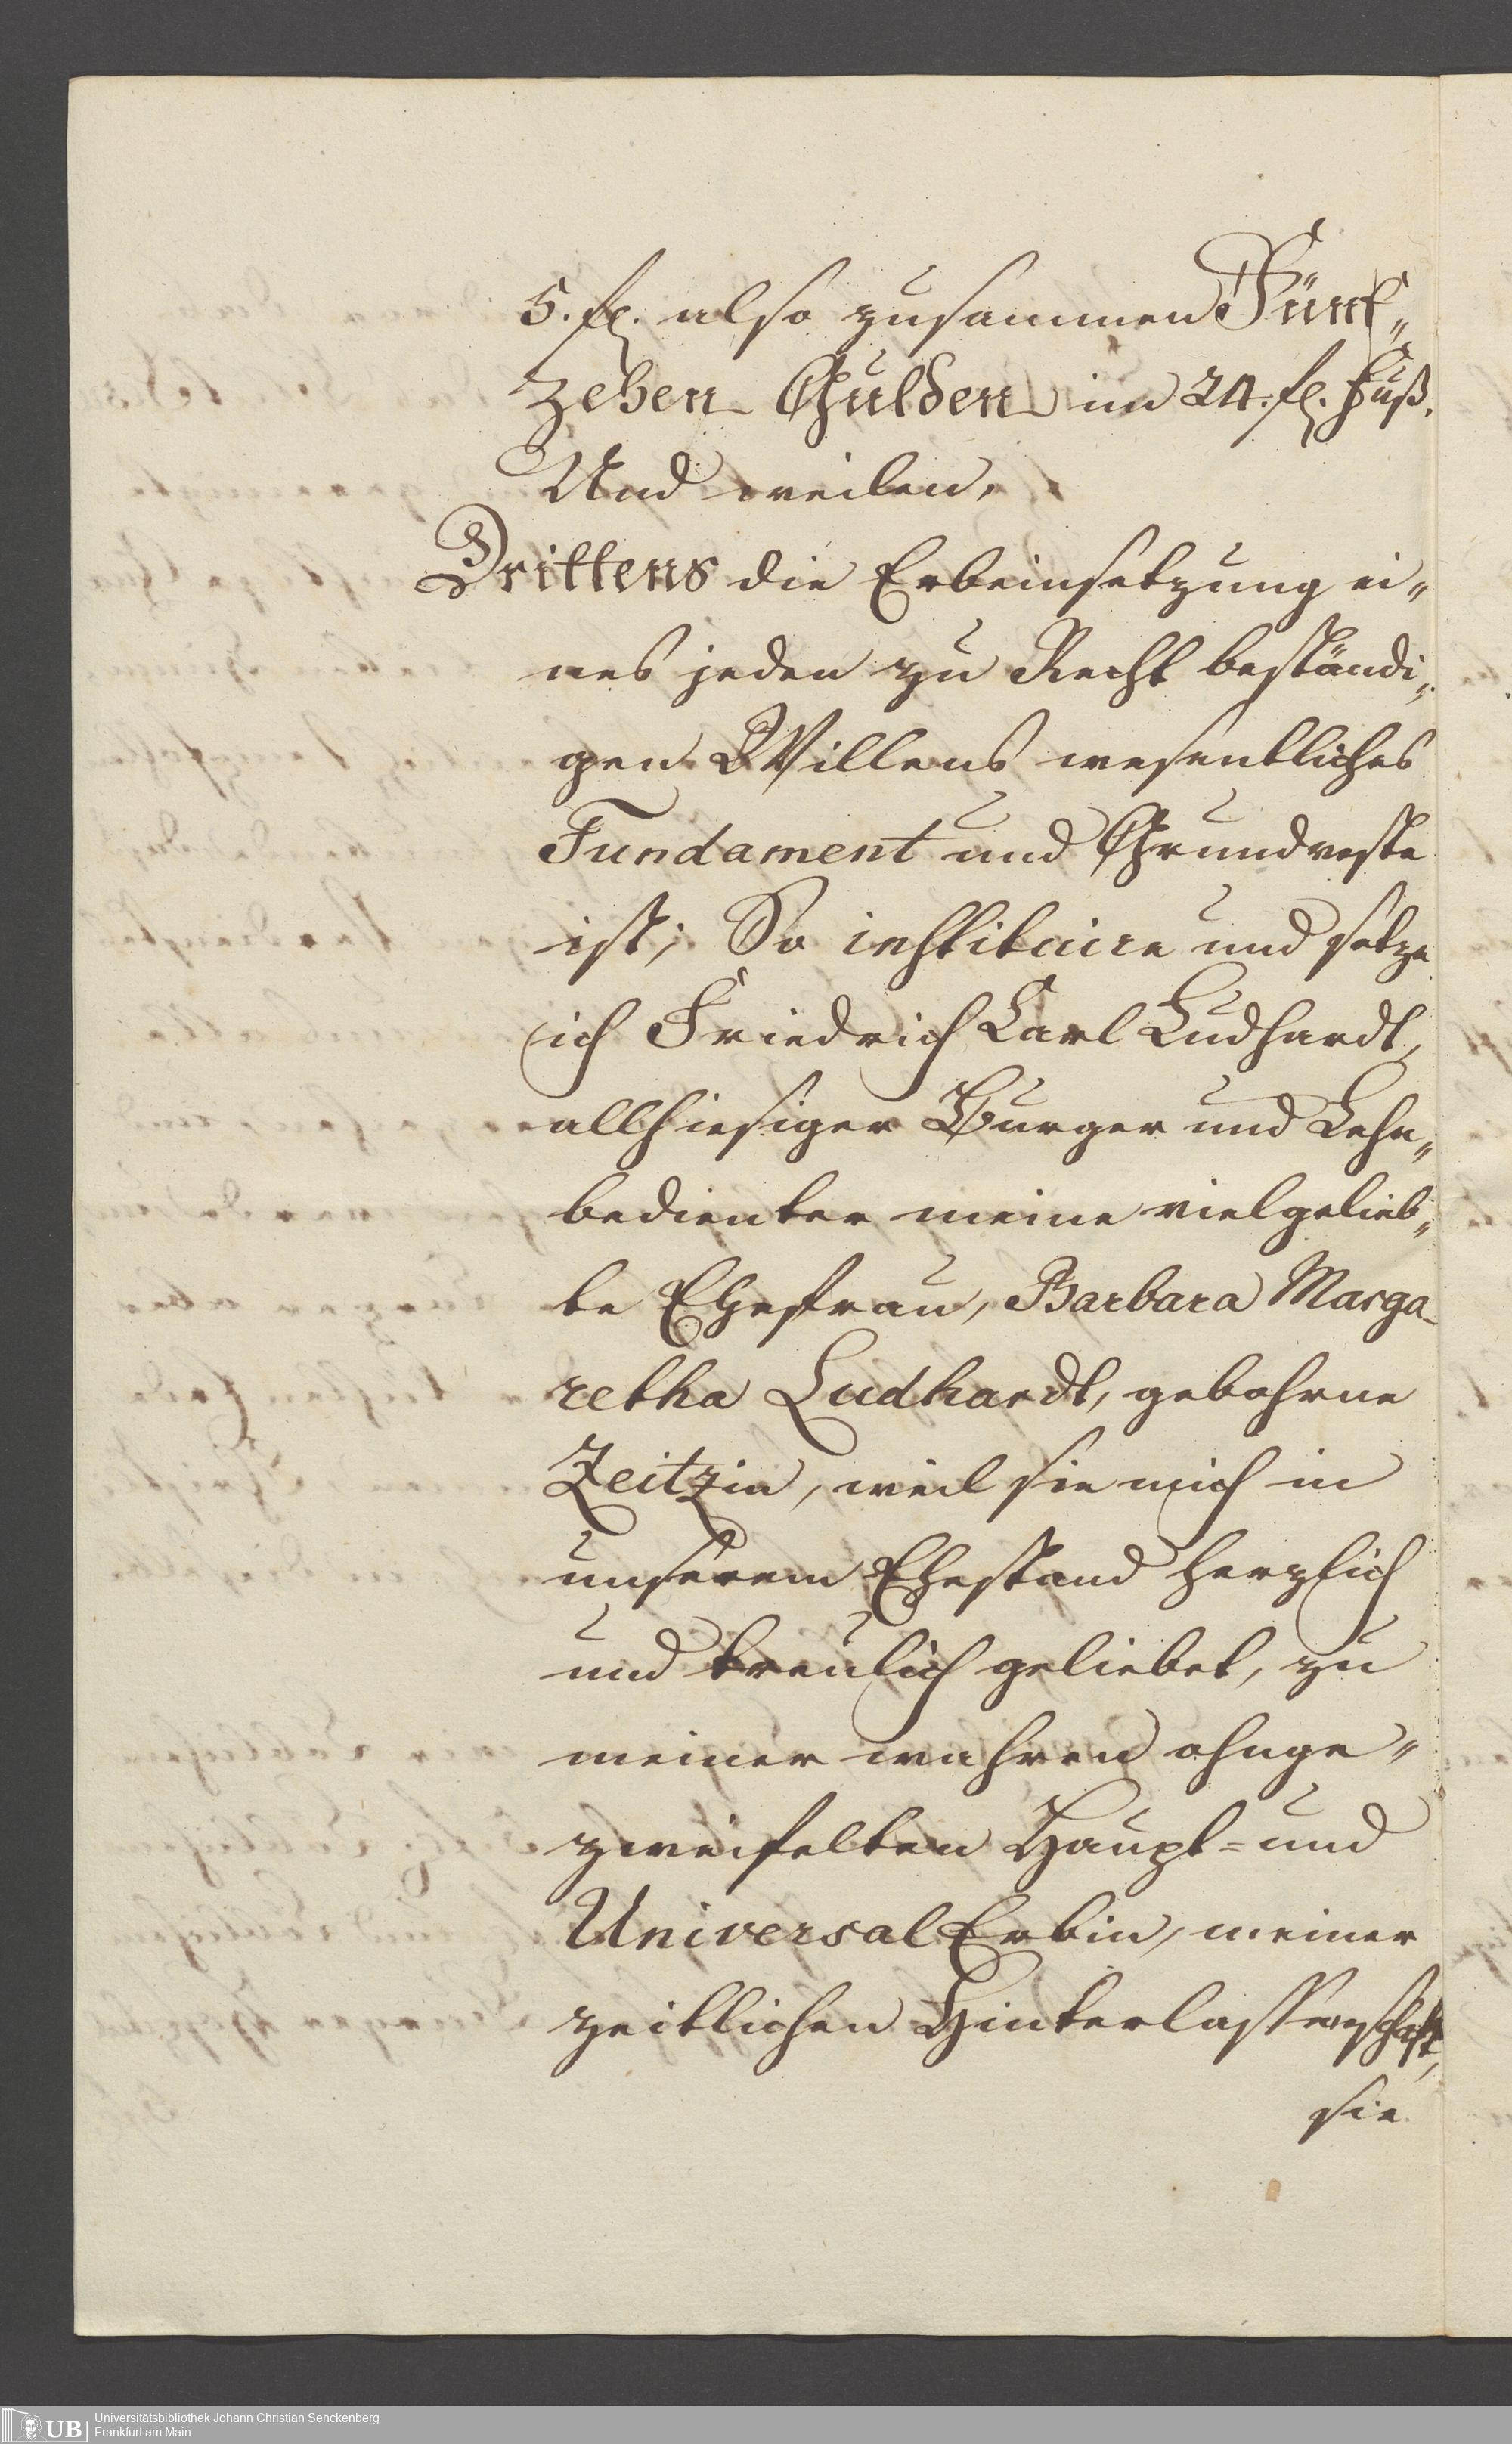 5. fl. also zusammen Fünf„
zehen Gulden im 24. fl. Fuß.
Und weilen,
Drittens die Erbeinsetzung ei„
nes jeden zu Recht beständi„
gen Willens wesentliches
Fundament und Grundveste
ist; So instituire und setze
ich Friedrich Carl Ludhardt,
allhiesiger Burger und Lehn„
bedienter meine vielgelieb„
te Ehefrau, Barbara Marga-
retha Ludhardt, gebohrne
Zeitzin, weil sie mich in
unserem Ehestand herzlich
und treulich geliebet, zu
meiner wahren ohnge„
zweifelten Haupt= und
Universal Erbin, meiner
zeitlichen Hinterlassenschaft,
sie
UB Universitätsbibliothek Johann Christian Senckenberg
Frankfurt am Main